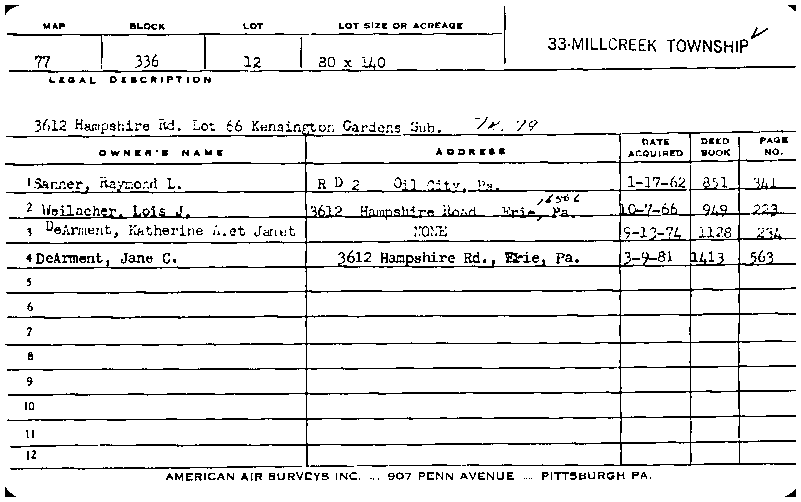 MAP BLOCK LOT LOT SIZE OR ACREAGE
33-MILLCREEK TOWNSHIP
77 336 12 80 x 140
LEGAL DESCRIPTION
3612 Hampshire Rd. Lot 66 Kensington Gardens Sub.
OWNER'S NAME ADDRESS DATE ACQUIRED DEED BOOK PAGE NO.
1 Sanner, Raymond L. R D 2 Oil City, Pa. 1-17-62 851 341
16506
2 Weilacher, Lois J. 3612 Hampshire Road Erie, Pa. 10-7-66 949 223
3 DeArment, Katherine A.et Janet NONE 9-13-74 1128 234
4 DeArment, Jane C. 3612 Hampshire Rd., Erie, Pa. 3-9-81 1413 563
5
6
7
8
9
10
11
12
AMERICAN AIR SURVEYS INC. ... 907 PENN AVENUE ... PITTSBURGH PA.